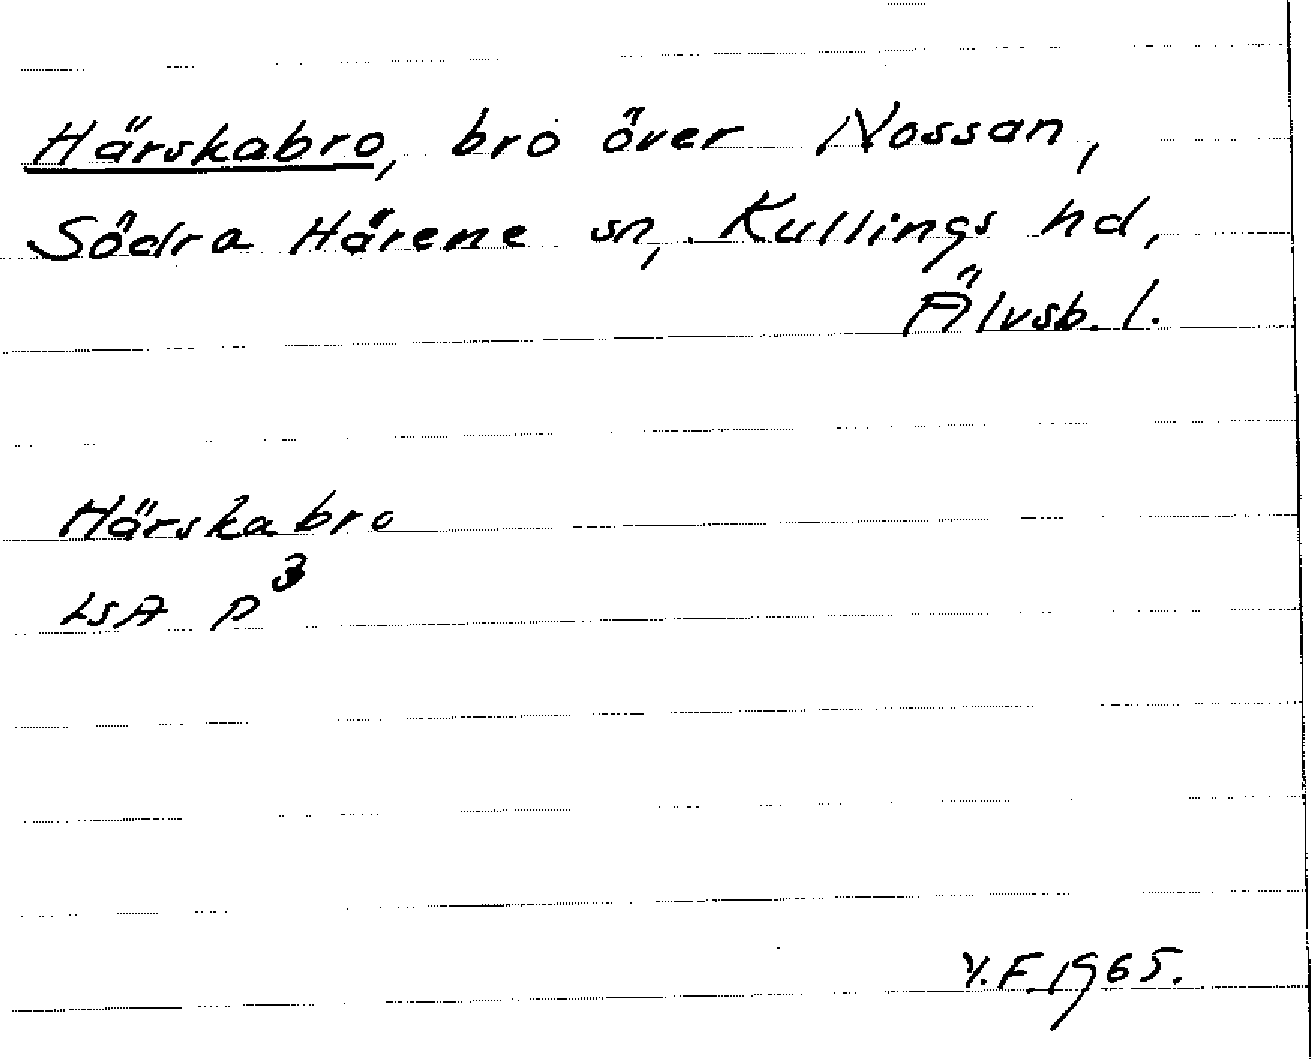 Härskabro, bro över Nossan,
Södra Härene sn, Kullings hd,
Älvsb. l.
Härskabro
LSA P³
V.F. 1965.